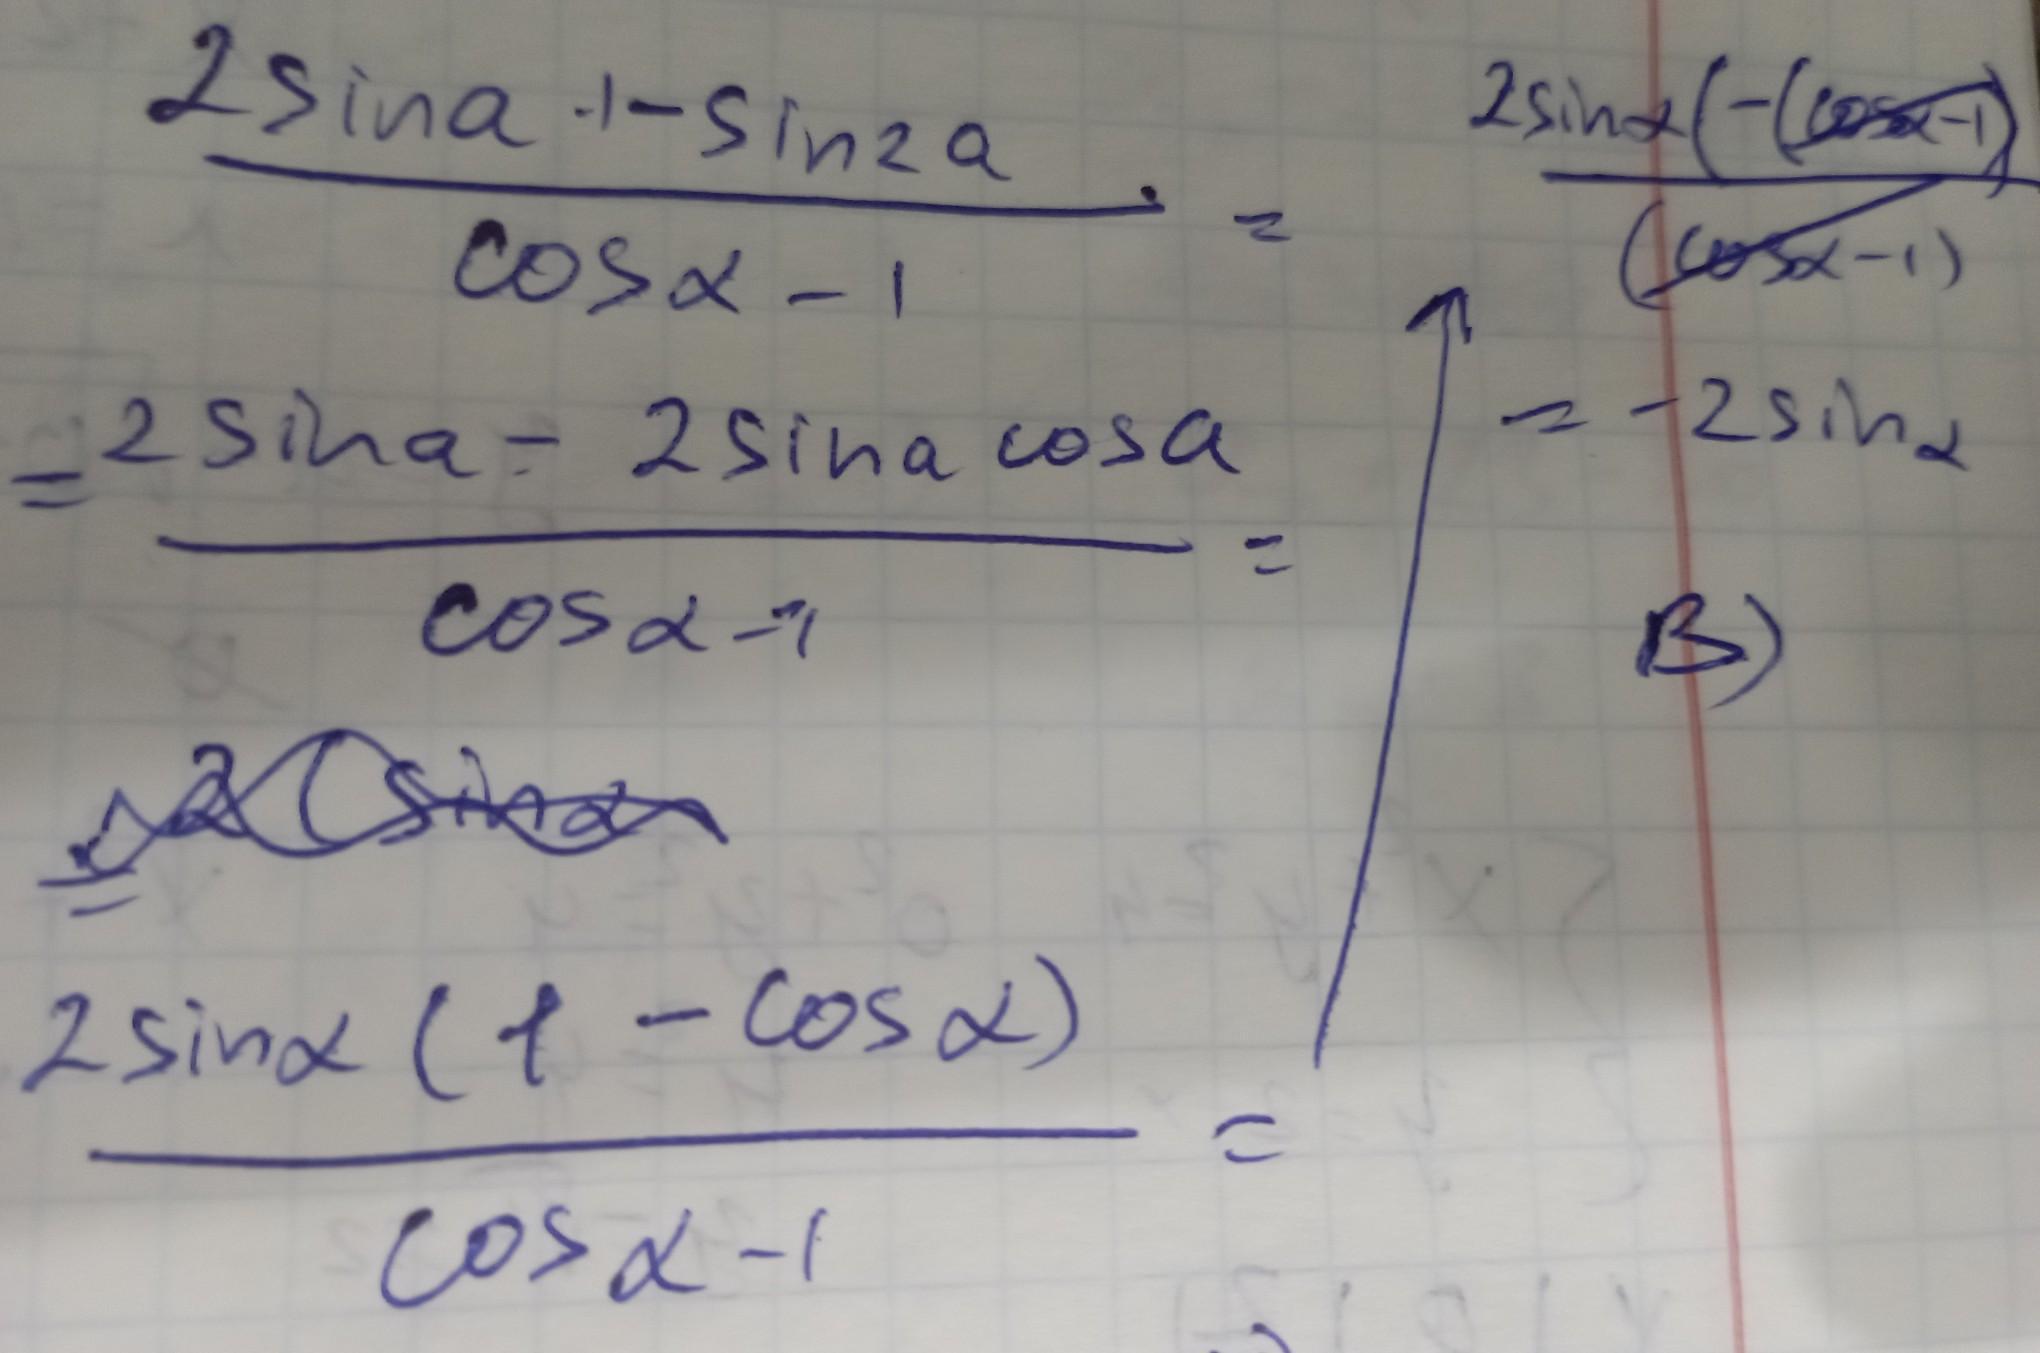 2sina·1-sin2a
cosα-1 =
=2sina-2sinacosa
cosα-1 =
= 2(sinα
2sinα(1-cosα)
cosα-1 =
2sinα(-(cosα-1)
(cosα-1)
=-2sinα
B)